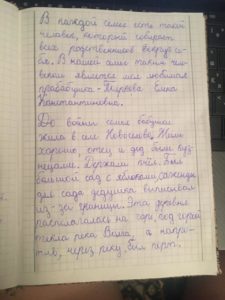 В каждой семье есть такой
человек, который собирает
всех родственников вокруг се-
бя. В нашей семье таким чело-
веком является моя любимая
прабабушка -
Константиновна.
До войны семья бабушки
жила в селе Новоселки. Жили
хорошо, отец и дед были куз-
нецами. Держали пчёл. Был
большой сад с яблоками, саженцы
для сада дедушка выписывал
из-за границы. Эта деревня
располагалась на горе, под горой
текла река Волга, а напро-
тив, через реку, был